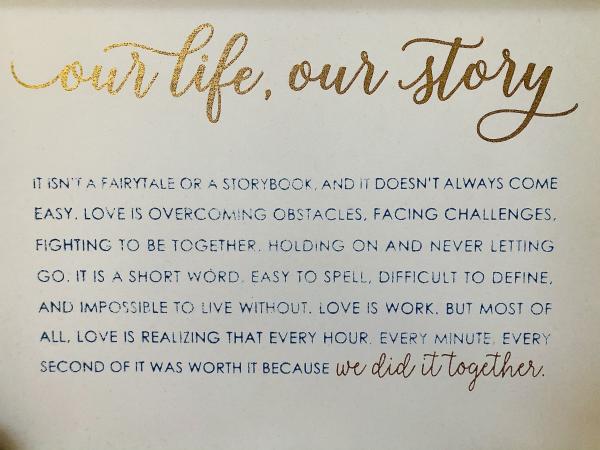 our life, our story
IT ISN'T A FAIRYTALE OR A STORYBOOK, AND IT DOESN'T ALWAYS COME
EASY. LOVE IS OVERCOMING OBSTACLES, FACING CHALLENGES,
FIGHTING TO BE TOGETHER. HOLDING ON AND NEVER LETTING
GO. IT IS A SHORT WORD, EASY TO SPELL, DIFFICULT TO DEFINE,
AND IMPOSSIBLE TO LIVE WITHOUT. LOVE IS WORK. BUT MOST OF
ALL, LOVE IS REALIZING THAT EVERY HOUR, EVERY MINUTE, EVERY
SECOND OF IT WAS WORTH IT BECAUSE we did it together.